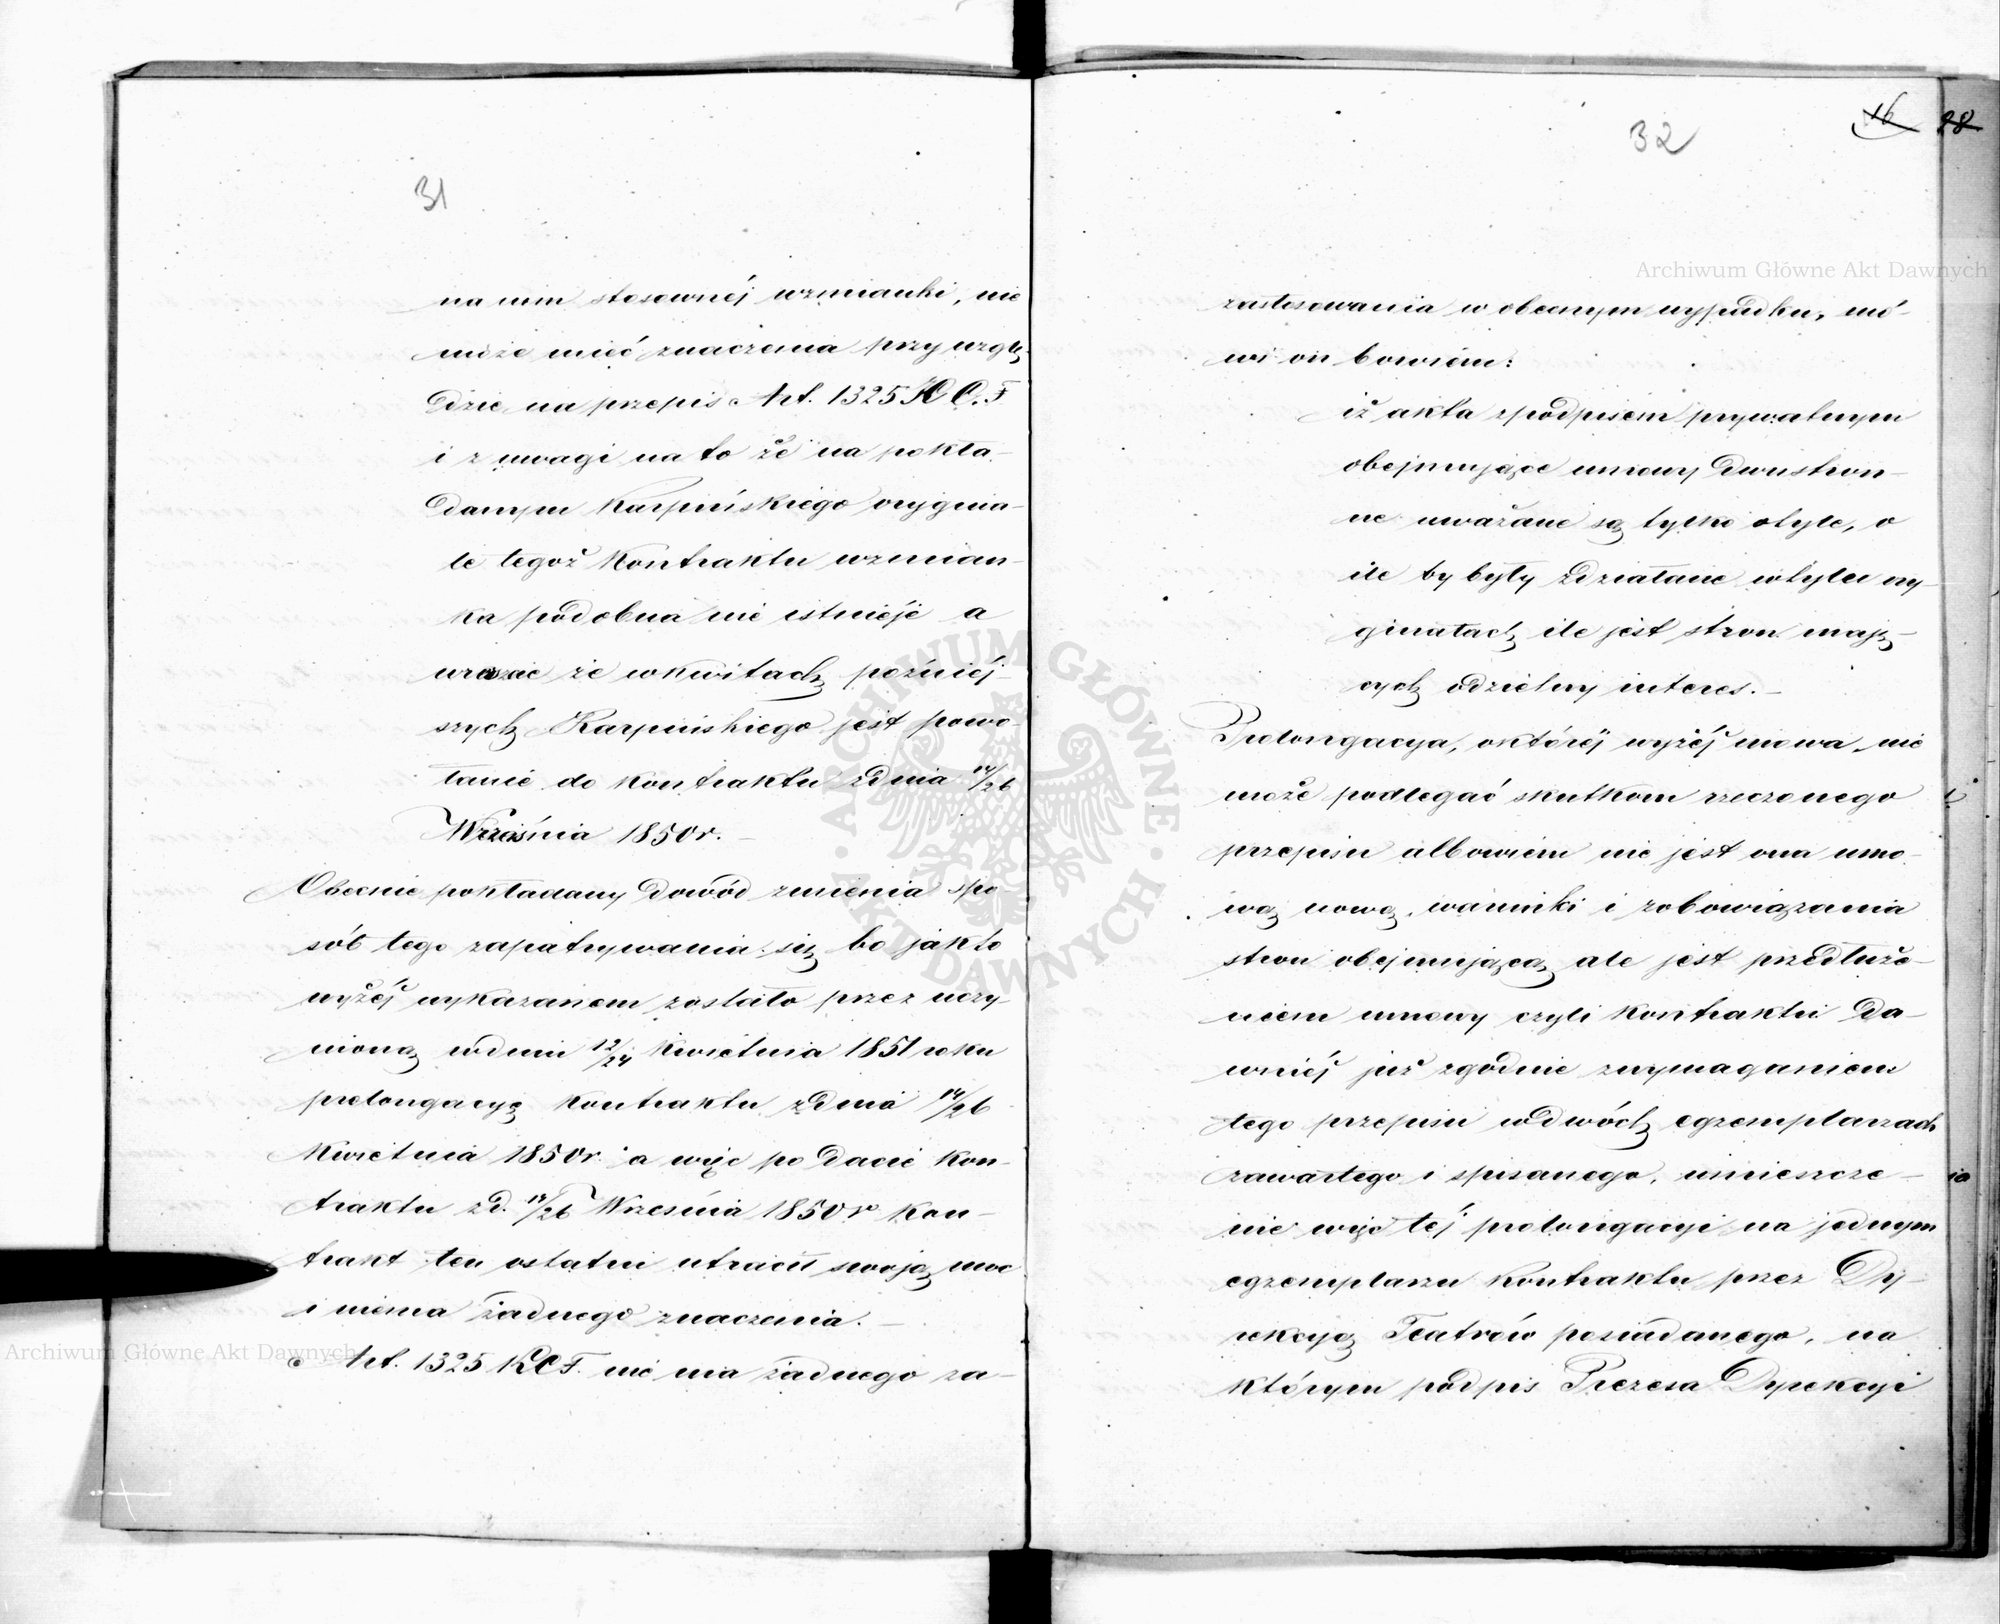 31
na nim stosownéj wzmianki, nie
może mieć znaczenia przy wzglę-
dzie na przepis Art. 1325 K C. F
i z uwagi na to że na pokła-
danym Karpińskiego orygina-
le tegoż Kontraktu wzmian-
ka podobna nie istnieje a
wrazie że w kwitach późniéj-
szych Karpińskiego jest powo
łanie do kontraktu z dnia 14/26
Września 1850 r. —
Obecnie pokładany dowód zmienia spo
sób tego zapatrywania się bo jak to
wyżéj wykazanem zostało przez uczy-
nioną w dniu 12/24 Kwietnia 1851 roku
prolongacyę kontraktu z dnia 14/26
Kwietnia 1850 r. a więc po dacie Kon-
traktu z d. 14/26 Września 1850 r Kon-
trakt ten ostatni utracił swoją moc
i niema żadnego znaczenia. —
Art. 1325 K C F. nie ma żadnego za-
32
16 28
zastosowania w obecnym wypadku, mó-
wi on bowiem:
iż akta z podpisem prywatnym
obejmujące umowy dwustron-
ne uważane są tylko otyle, o
ile by były zdziałane w tylu ory-
ginałach ile jest stron mają-
cych oddzielny interes. —
Prolongacya, o któréj wyżéj mowa, nie
może podlegać skutkom rzeczonego
przepisu albowiem nie jest ona umo-
wą nową, warunki i zobowiązania
stron obejmującą ale jest przedłuże-
niem umowy czyli kontraktu da-
wniéj już zgodnie z wymaganiem
tego przepisu w dwóch egzemplarzach
zawartego i spisanego, umieszcze-
nie więc téj prolongacyi na jednym
egzemplarzu kontraktu przez Dy-
rekcyą Teatrów posiadanego, na
którym podpis Prezesa Dyrekcyi
Archiwum Główne Akt Dawnych
Archiwum Główne Akt Dawnych
ARCHIWUM GŁÓWNE AKT DAWNYCH